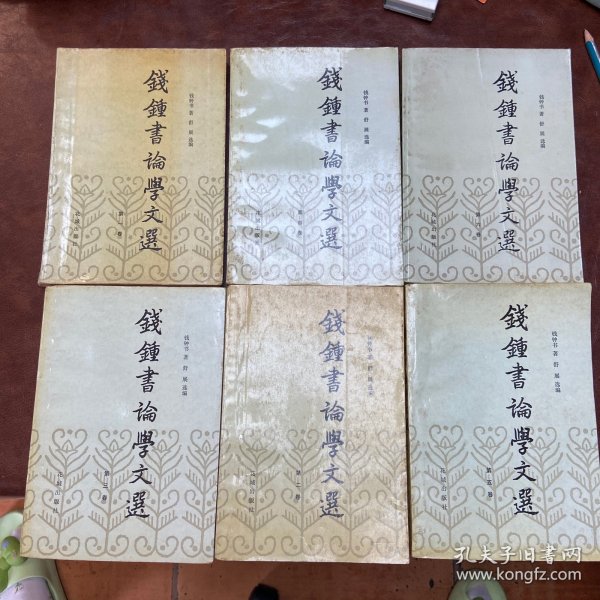 錢鍾書論學文選
钱钟书 著 舒 展 选编
第一卷
花城出版社
錢鍾書論學文選
钱钟书 著 舒 展 选编
花城出版社
錢鍾書論學文選
钱钟书 著 舒 展 选编
第六卷
花城出版社
錢鍾書論學文選
钱钟书 著 舒 展 选编
第三卷
花城出版社
錢鍾書論學文選
钱钟书 著 舒 展 选编
第二卷
花城出版社
錢鍾書論學文選
钱钟书 著 舒 展 选编
第五卷
花城出版社
孔夫子旧书网
www.kongfz.com